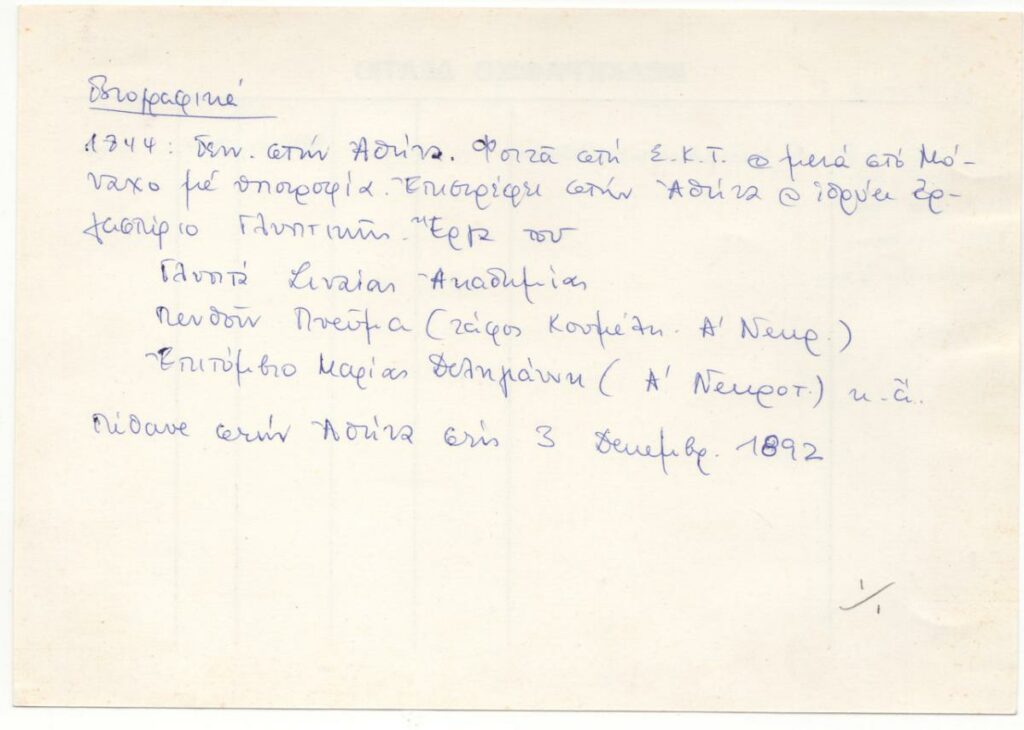 Βιογραφικά
1844: Γεν. στήν Ἀθήνα. Φοιτᾶ στή Σ.Κ.Τ. @ μετά στό Μό-
ναχο μέ ὑποτροφία. Ἐπιστρέφει στήν Ἀθήνα @ ἱδρύει ἐρ-
γαστήριο Γλυπτικῆς. Ἔργα του
Γλυπτά Σιναίας Ἀκαδημίας
Πενθοῦν Πνεῦμα (τάφος Κουμέλη. Α' Νεκρ.)
Ἐπιτύμβιο Μαρίας Δεληγιάννη (Α' Νεκροτ.) κ.ἄ.
Πέθανε στήν Ἀθήνα στίς 3 Δεκεμβρ. 1892
1/1